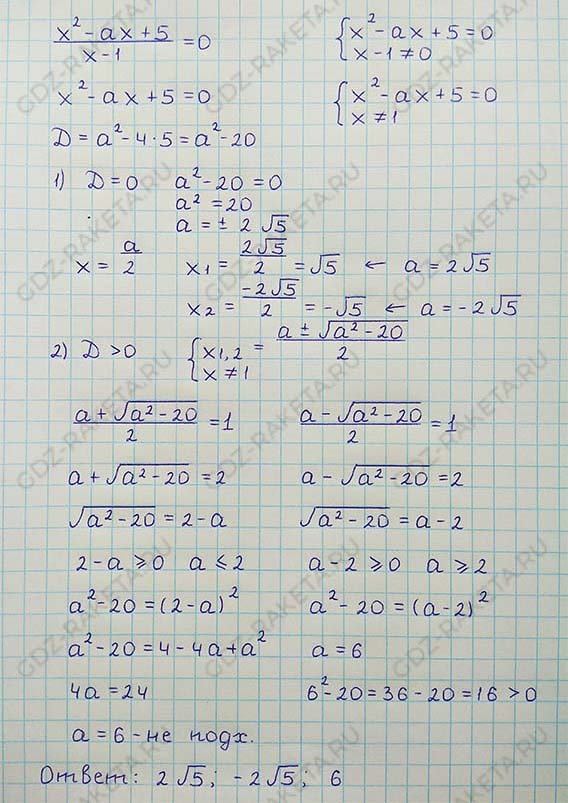 (x² - ax + 5)/(x - 1) = 0    { x² - ax + 5 = 0
x - 1 ≠ 0
x² - ax + 5 = 0    { x² - ax + 5 = 0
x ≠ 1
D = a² - 4·5 = a² - 20
1) D = 0    a² - 20 = 0
a² = 20
a = ± 2√5
x = a/2    x₁ = 2√5/2 = √5 ← a = 2√5
x₂ = -2√5/2 = -√5 ← a = -2√5
2) D > 0    { x₁,₂ = (a ± √(a² - 20))/2
x ≠ 1
(a + √(a² - 20))/2 = 1    (a - √(a² - 20))/2 = 1
a + √(a² - 20) = 2    a - √(a² - 20) = 2
√(a² - 20) = 2 - a    √(a² - 20) = a - 2
2 - a ⩾ 0    a ⩽ 2    a - 2 ⩾ 0    a ⩾ 2
a² - 20 = (2 - a)²    a² - 20 = (a - 2)²
a² - 20 = 4 - 4a + a²    a = 6
4a = 24    6² - 20 = 36 - 20 = 16 > 0
a = 6 - не подх.
Ответ: 2√5; -2√5; 6
GDZ-RAKETA.RU